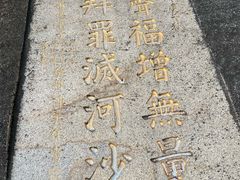 福增無量
罪滅河沙